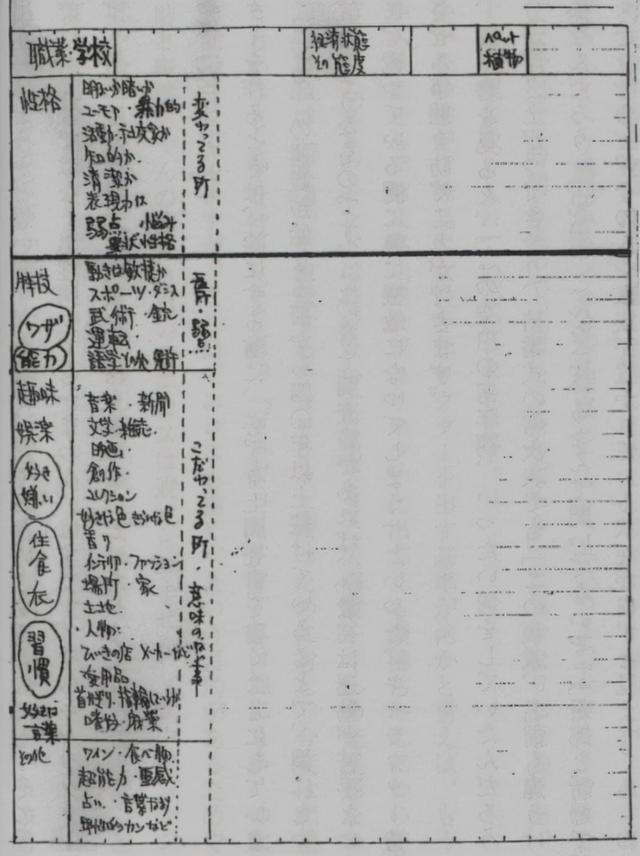 職業 学校
経済状態
その態度
ペット
植物
性格
明るいか暗いか
ユーモア・暴力的
活動・社交家か
知的か
清潔か
表現力は
弱点 悩み
異状性格
変わってる所
特技
ワザ
能力
動きは敏捷か
スポーツ・ダンス
武術・銃
運転
語学その他 免許
長所・弱点
趣味
娯楽
好き
嫌い
住
食
衣
習
慣
好きな
言葉
音楽・新聞
文学・雑誌
映画
創作・
コレクション
好きな色 きらいな色
香り
インテリア・ファッション
場所・家
土地
人物
ひいきの店 メーカーなど
愛用品
首かざり・指輪
嗜好・麻薬
こだわってる所・意味のない事
その他
ワイン・食べ物
超能力・霊感
占い・言葉
カンなど